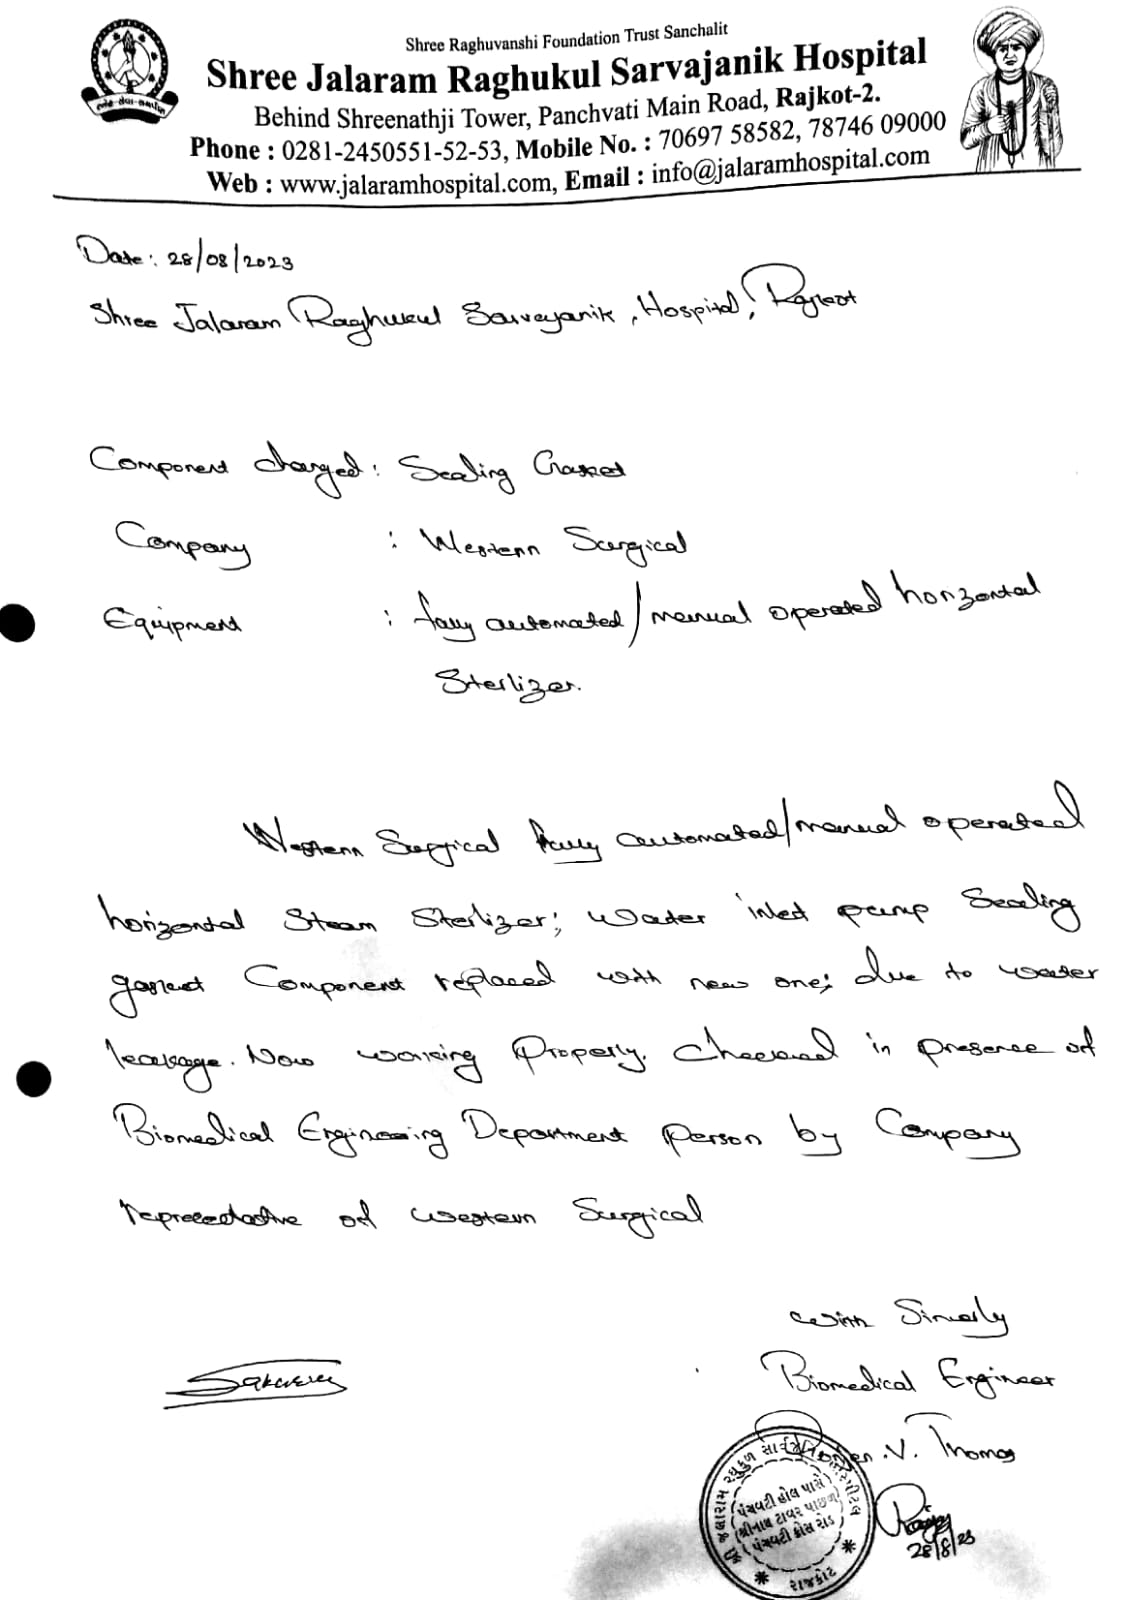 Shree Raghuvanshi Foundation Trust Sanchalit
Shree Jalaram Raghukul Sarvajanik Hospital
Behind Shreenathji Tower, Panchvati Main Road, Rajkot-2.
Phone : 0281-2450551-52-53, Mobile No. : 70697 58582, 78746 09000
Web : www.jalaramhospital.com, Email : info@jalaramhospital.com
Date: 28/08/2023
Shree Jalaram Raghukul Sarvajanik, Hospital, Rajkot
Component changed: Sealing Gasket
Company : Western Surgical
Equipment : fully automated/manual operated horizontal
Sterlizer.
Western Surgical fully automated/manual operated
horizontal Steam Sterlizer; water inlet pump Sealing
gasket Component replaced with new one; due to water
leakage. Now working properly. Checked in presence of
Biomedical Engineering Department person by Company
representative of western Surgical
with Sincerly
Biomedical Engineer
.V. Thomas
શ્રી જલારામ રઘુકુળ સાર્વજનિક હોસ્પીટલ
પંચવટી હોલ પાસે
શ્રીનાથ ટાવર પાછળ
પંચવટી ક્રોસ રોડ
રાજકોટ
28/8/23